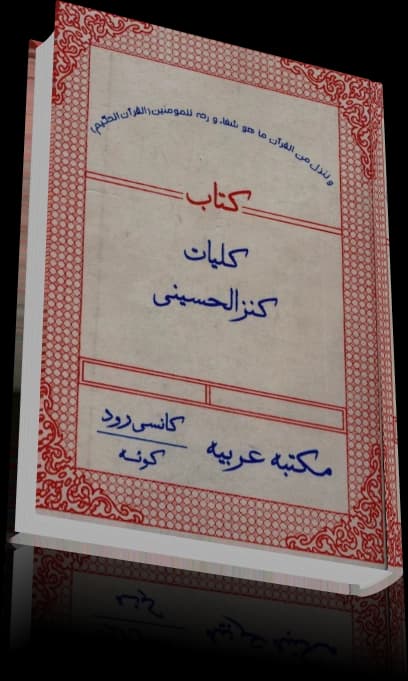 و ننزل من القرآن ما هو شفاء و رحمة للمومنین (القرآن الحکیم)
کتاب
کلیات
کنزالحسینی
مکتبه عربیه
کانسی رود
کوئٹه